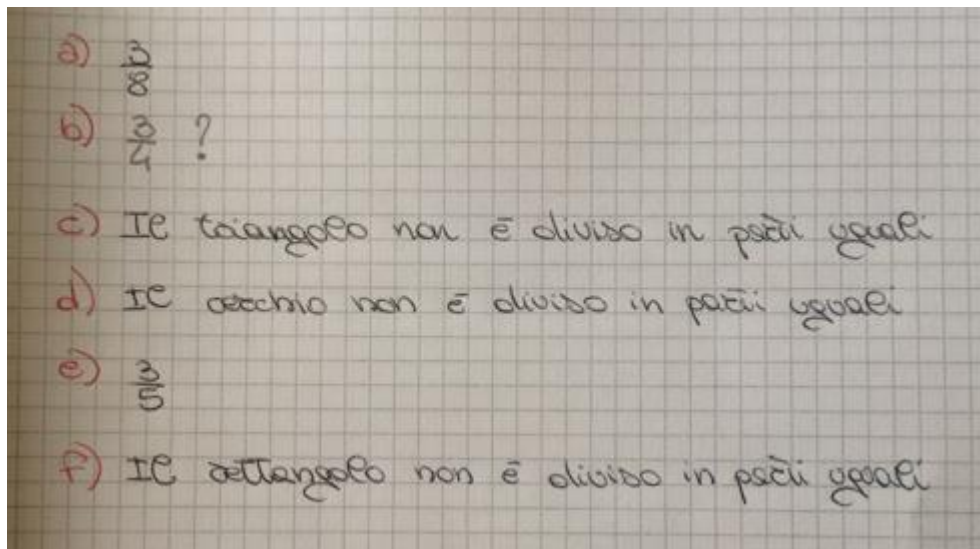 a) 3/8
b) 3/4 ?
c) Il triangolo non è diviso in parti uguali
d) Il cerchio non è diviso in parti uguali
e) 3/5
f) Il rettangolo non è diviso in parti uguali